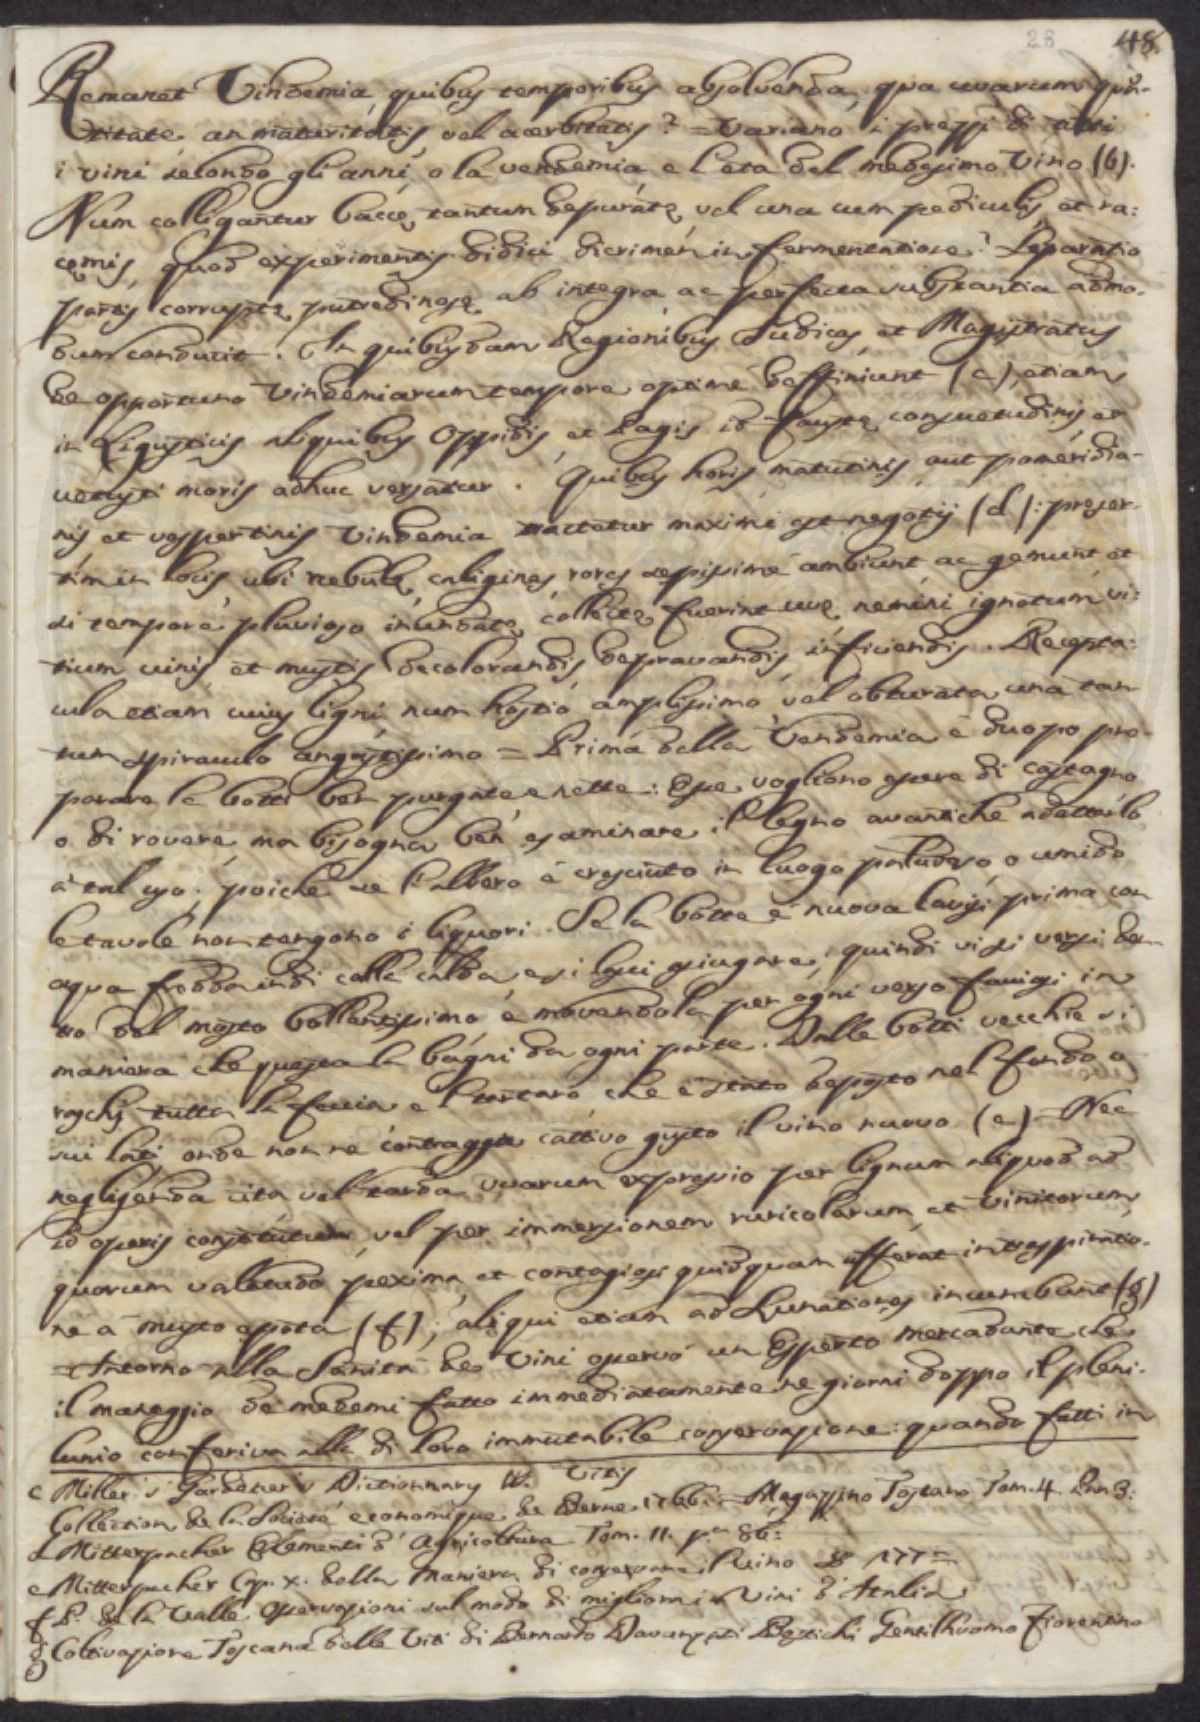 28 48.
Remanet Vindemia, quibus temporibus absolvenda, qua uvarum quan-
titate, an maturitatis, vel acerbitatis? = Variano i prezzi di tutti
i vini secondo gli anni, o la vendemia e l'eta del medesimo vino (b).
Num colligantur baccę tantum depuratę vel una cum pediculis et ra:
cęmis, quod experimentis didici dicrimen in fermentatione? Separatio
partis corruptę putredinosę ab integra, ac perfecta substantia admo-
dum conducit. In quibusdam Regionibus Judices, et Magistratus
de opportuno Vindemiarum tempore optime deffiniunt (c), etiam
in Ligusticis aliquibus Oppidis, et Pagis id consuetudinis, et
vetusti moris adhuc versatur. Quibus horis matutinis, aut pomeridia-
nis et vespertinis Vindemia tractetur maximi est negotij (d): preser-
tim in locis, ubi nebulę, caligines, rores sepissime ambiunt ac gemunt et
si tempore pluvioso inundatę collectę fuerint uvę, nemini ignotum vi:
tium vinis, et mustis decolorandis, depravandis, inficiendis. Recepta:
cula etiam cuius ligni, num hostio amplissimo, vel obturata una tan
tum spiraculo angustissimo = Prima della Vendemia è duopo pre-
parare le botti ben purgate, e nette: Esse vogliono essere di castagno
o di rovere, ma bisogna ben esaminare il legno avantiche adattarlo
a tal uso; poiche se l'albero è cresciuto in luogo paludoso, o umido
le tavole non tengono i liquori. Se la botte è nuova lavisi prima con
aqua fredda indi colla calda, e si lasci asciugare, quindi vi si versi den-
tro del mosto bollentissimo, e movendola per ogni verso faccisi in
maniera che questa la bagni da ogni parte. Dalle botti vecchie si
raschi tutta la feccia e l tartaro che è stato deposto nel fondo, o
sui lati onde non ne contragga cattivo gusto il vino nuovo (e) = Nec
negligenda cita, vel tarda uvarum expressio per lignum aliquod ad
id operis constitutum, vel per immersionem ruricolarum, et Vinitorum,
quorum valetudo pexima, et contagiosi quidquam afferat intraspiratio-
ne a musto epota (f); aliqui etiam ad Lunationes incumbant (g)
= Intorno alla Sanità de Vini osservò un Esperto mercadante, che
il maneggio de medemi fatto immediatamente ne giorni doppo il pleni-
lunio conferiva alla di loro immutabile conservazione: quando fatti in
c Miller's Gardener's Dictionnary W. Vitis
Collection de la Societé économique de Berne. 1766. = Magazzino Toscano Tom. 4. Pan 3:
d Mitterpacher Elementi d' Agricoltura Tom. 11. p.ª 86:
e Mitterpacher Cap. x. della Maniera di conservare il vino § 177 =
f P. de la Valle Osservazioni sul modo di migliorari Vini d'Italia
g Coltivazione Toscana delle Viti di Bernardo Davanzati Bostichi Gentilhuomo Fiorentino